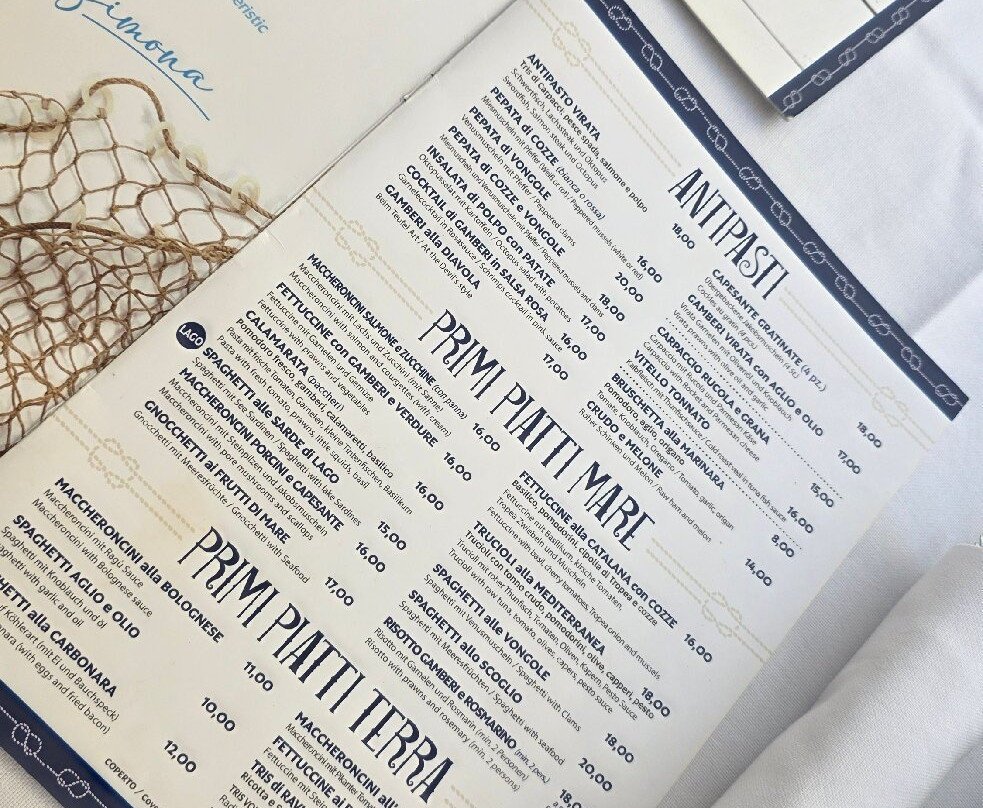 eristic
Simona
ANTIPASTI
ANTIPASTO VIRATA 18,00
Tris di Carpacci, pesce spada, salmone e polpo
Schwertfisch, Lachssteak und Oktopus
Swordfish, Salmon steak and Octopus
PEPATA di COZZE (bianca o rossa) 16,00
Miesmuscheln mit Pfeffer (weiß/rot) / Peppered mussels (white or red)
PEPATA di VONGOLE 20,00
Venusmuscheln mit Pfeffer / Peppered clams
PEPATA di COZZE e VONGOLE 18,00
Miesmuscheln und Venusmuscheln mit Pfeffer / Peppered mussels and clams
INSALATA di POLPO con PATATE 17,00
Oktopussalat mit Kartoffeln / Octopus salad with potatoes
COCKTAIL di GAMBERI in SALSA ROSA 16,00
Garnelencocktail in Rosasauce / Schrimps cocktail in pink sauce
GAMBERI alla DIAVOLA 17,00
Beijm Teufel Art / At the Devil's style
CAPESANTE GRATINATE (4 pz.) 18,00
Übergebackene Jakobsmuscheln (4 St.)
Cockles au gratin (4 pcs)
GAMBERI VIRATA con AGLIO e OLIO 17,00
Virata Garnelen mit Olivenöl und Knoblauch
Virata prawns with olive oil and garlic
CARPACCIO RUCOLA e GRANA 15,00
Carpaccio mit Rucola und Parmesan Käse
Carpaccio with Rocket and Parmesan cheese
VITELLO TONNATO 16,00
Kalbfleisch mit Thunfischsauce / Cold roast veal in tuna fish sauce
BRUSCHETTA alla MARINARA 8,00
Pomodoro, aglio, origano
Tomate, Knoblauch, Oregano / Tomato, garlic, origan
CRUDO e MELONE 14,00
Roher Schinken und Melon / Raw ham and melon
PRIMI PIATTI MARE
MACCHERONCINI SALMONE e ZUCCHINE (con panna) 16,00
Maccheroncini mit Lachs und Zucchini (mit Sahne)
Maccheroncini with salmon and courgettes (with cream)
FETTUCCINE con GAMBERI e VERDURE 16,00
Fettuccine mit Garnelen und Gemüse
Fettuccines with prawns and vegetables
CALAMARATA (paccheri) 16,00
Pomodoro fresco, gamberi, calamaretti, basilico
Pasta mit frische Tomaten, Garnelen, kleine Tintenfischen, Basilikum
Pasta with fresh tomato, prawns, little squids, basil
LAGO
SPAGHETTI alle SARDE di LAGO 15,00
Spaghetti mit See Sardinen / Spaghetti with lake Sardines
MACCHERONCINI PORCINI e CAPESANTE 16,00
Maccheroncini mit Steinpilzen und Jakobsmuscheln
Maccheroncini with pore mushrooms and scallops
GNOCCHETTI ai FRUTTI DI MARE 17,00
Gnocchetti mit Meeresfrüchte / Gnocchetti with Seafood
FETTUCCINE alla CATALANA con COZZE 16,00
Basilico, pomodorini, cipolla di Tropea e cozze
Fettuccine mit Basilikum, kirsche Tomaten,
Tropea Zwiebeln und Muscheln
Fettuccine with basil, cherry tomatoes, Tropea onion and mussels
TRUCIOLI alla MEDITERRANEA 18,00
Trucioli con tonno crudo, pomodorini, olive, capperi, pesto
Trucioli mit roher Thunfisch, Tomaten, Oliven, Kapern, Pesto Sauce
Trucioli with raw tuna, tomato, olives, capers, pesto sauce
SPAGHETTI alle VONGOLE 18,00
Spaghetti mit Venusmuscheln / Spaghetti with Clams
SPAGHETTI allo SCOGLIO 20,00
Spaghetti mit Meeresfrüchten / Spaghetti with seafood
RISOTTO GAMBERI e ROSMARINO (min. 2 pers.) 18,0
Risotto mit Garnelen und Rosmarin (min. 2 Personen)
Risotto with prawns and rosemary (min. 2 persons)
PRIMI PIATTI TERRA
MACCHERONCINI alla BOLOGNESE 11,00
Maccheroncini mit Ragù Sauce
Maccheroncini with Bolognese sauce
SPAGHETTI AGLIO e OLIO 10,00
Spaghetti mit Knoblauch und öl
paghetti with garlic and oil
HETTI alla CARBONARA 12,00
Köhlerart (mit Ei und Bauchspeck)
nara (with eggs and fried bacon)
COPERTO / COV
MACCHERONCINI all
Maccheroncini mit Pikanter Tomat
FETTUCCINE ai
Fettuccine mit Stei
TRIS di RAV
Ricotta e s